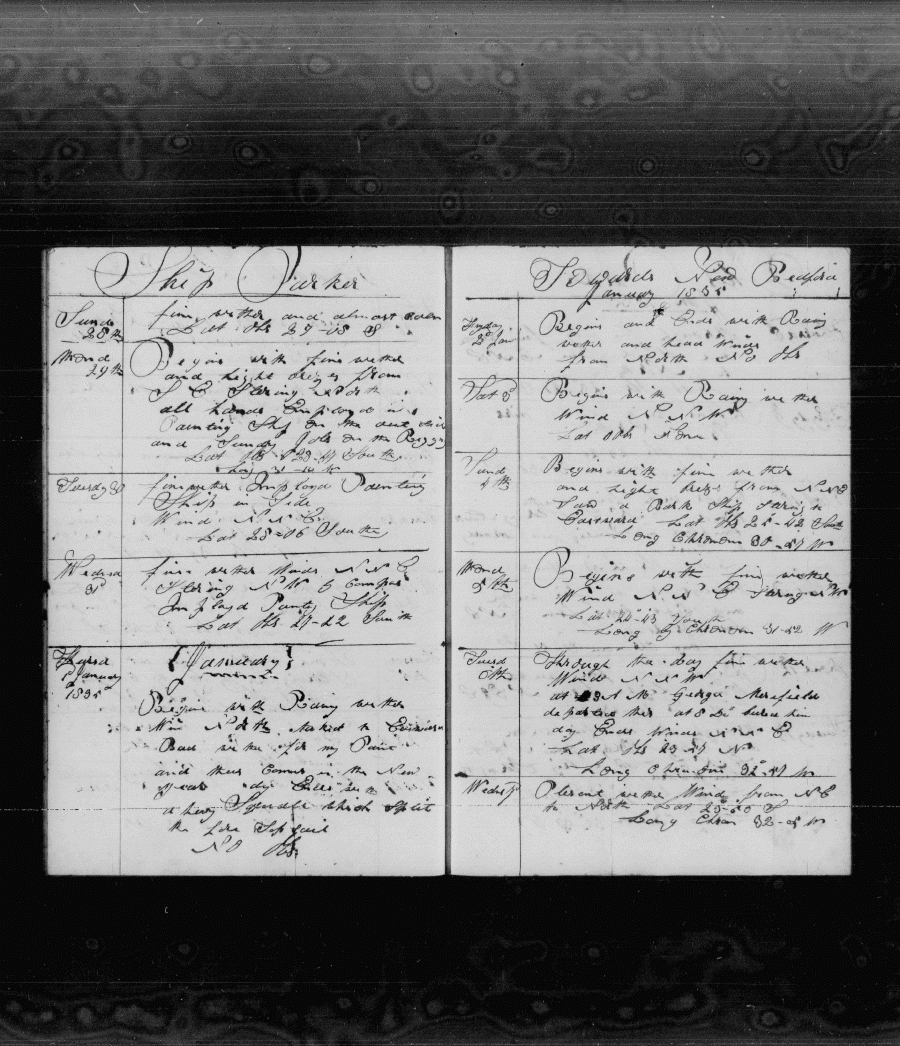 Ship Parker
Sund 28th
fine wether and almost calm
Lat Obs 29-18 S
Mond 29th
Begins with fine wether
and light from
S E Stering North
all hands Employd in
Painting Ship on the out side
and Sundry Jobs on the Riggg
Lat Obs 29 South
Tuesday 30
fine wether Imployd Painting
Ship in Side
Wind N N E
Lat 28-06 South
Wedned 31
fine wether Winds N N E
Stering N W by Compas
Imployd Painty Ship
Lat Obs 27-22 South
Thursd
1 January
1835
{January}
Begins with Rainy wether
Win North
Bad wether for my Paint
and thus Comes in the New
year day Ends with
a hevy Squall which Split
the fore Topsail
No Obs
Towards New Bedford
January 1835
Fryday
2d Jan
Begins and Ends with Rainy
wether and head Winds
from North No Obs
Sat 3
Begins with Rainy wether
Wind N N W
Lat Obs None
Sund
4th
Begins with fine wether
and light breze from N N E
Saw a Bark Ship Staring to
Lat Obs 25-42 South
Long Chronom 30-47 W
Mond
5th
Begins with fine wether
Wind N N E
Lat 24-43 South
Long by Chronom 31-52 W
Tuesd
6th
Through the day fine wether
Wind N N W
at 3 A M George Merefield
departed this at 8 Do
day Ends Winds N N E
Lat Obs 23-47
Long Chronom 32-47 W
Wed 7
Plesent wether Wind from N E
to North Lat 23-20 S
Long Chron 32 W